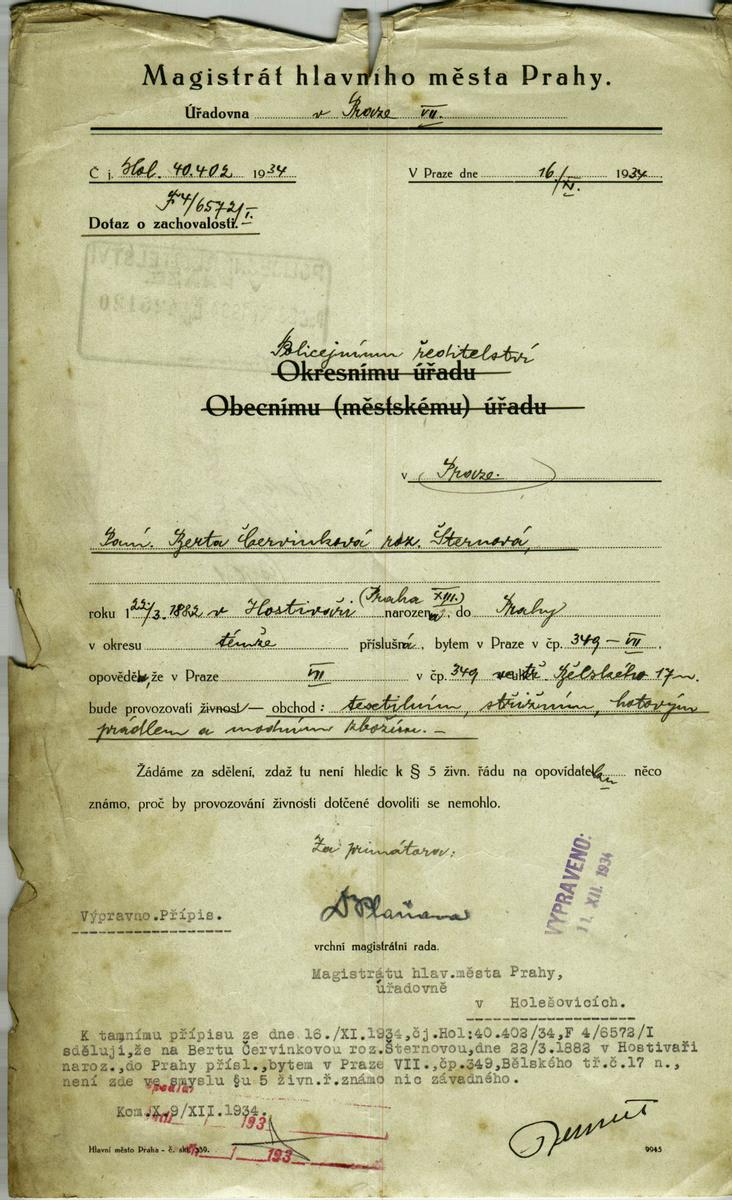 Magistrát hlavního města Prahy.
Úřadovna v Praze VII.
Č j. Hol. 40.402 1934
V Praze dne 16./XI. 1934
F 4/6572/I.
Dotaz o zachovalosti.
POLICEJNÍ ŘEDITELSTVÍ
Policejnímu ředitelství
Okresnímu úřadu
Obecnímu (městskému) úřadu
v Praze.
Paní. Berta Červinková roz. Šternová,
(Praha XIII.)
roku 1 22/3. 1882 v Hostivaři narozená, do Prahy
v okresu témže příslušná, bytem v Praze v čp. 349 – VII,
opověděla, že v Praze VII v čp. 349 tř. Bělského 17 n.
bude provozovati živnost — obchod: textilním, střižním, hotovým
prádlem a modním zbožím. –
Žádáme za sdělení, zdaž tu není hledíc k § 5 živn. řádu na opovídatelku něco
známo, proč by provozování živnosti dotčené dovoliti se nemohlo.
Za primátora:
VYPRAVENO:
11. XII. 1934
Výpravno.Přípis.
vrchní magistrátní rada.
Magistrátu hlav.města Prahy,
úřadovně
v Holešovicích.
K tamnímu přípisu ze dne 16./XI.1934,čj.Hol:40.402/34,F 4/6572/I
sděluji,že na Bertu Červinkovou roz.Šternovou,dne 22/3.1882 v Hostivaři
naroz.,do Prahy přísl.,bytem v Praze VII.,čp.349,Bělského tř.č.17 n.,
není zde ve smyslu §u 5 živn.ř.známo nic závadného.
Kom.X.9/XII.1934.
193
193
Hlavní město Praha - č. skl.
9945